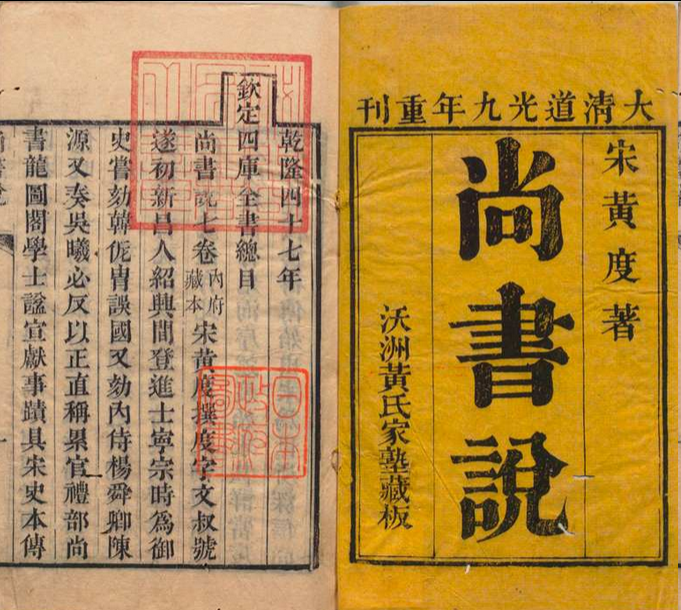 大清道光九年重刊
宋黃度著
尚書說
沃洲黃氏家塾藏板
乾隆四十七年
欽定四庫全書總目
尚書說七卷內府藏本宋黃度撰度字文叔號
遂初新昌人紹興間登進士寧宗時為御
史嘗劾韓侂冑誤國又劾內侍楊舜卿陳
源又奏吳曦必反以正直稱累官禮部尚
書龍圖閣學士諡宣獻事蹟具宋史本傳